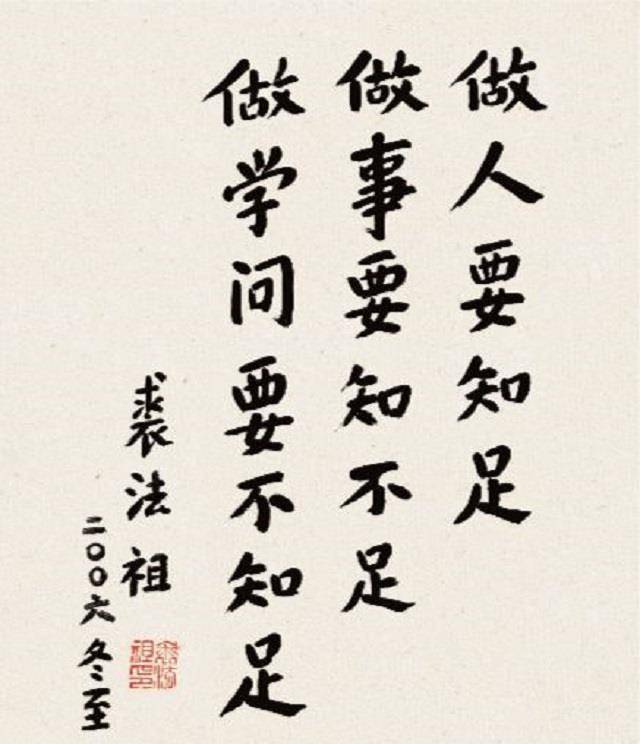 做人要知足
做事要知不足
做学问要不知足
裘法祖
二〇〇六冬至